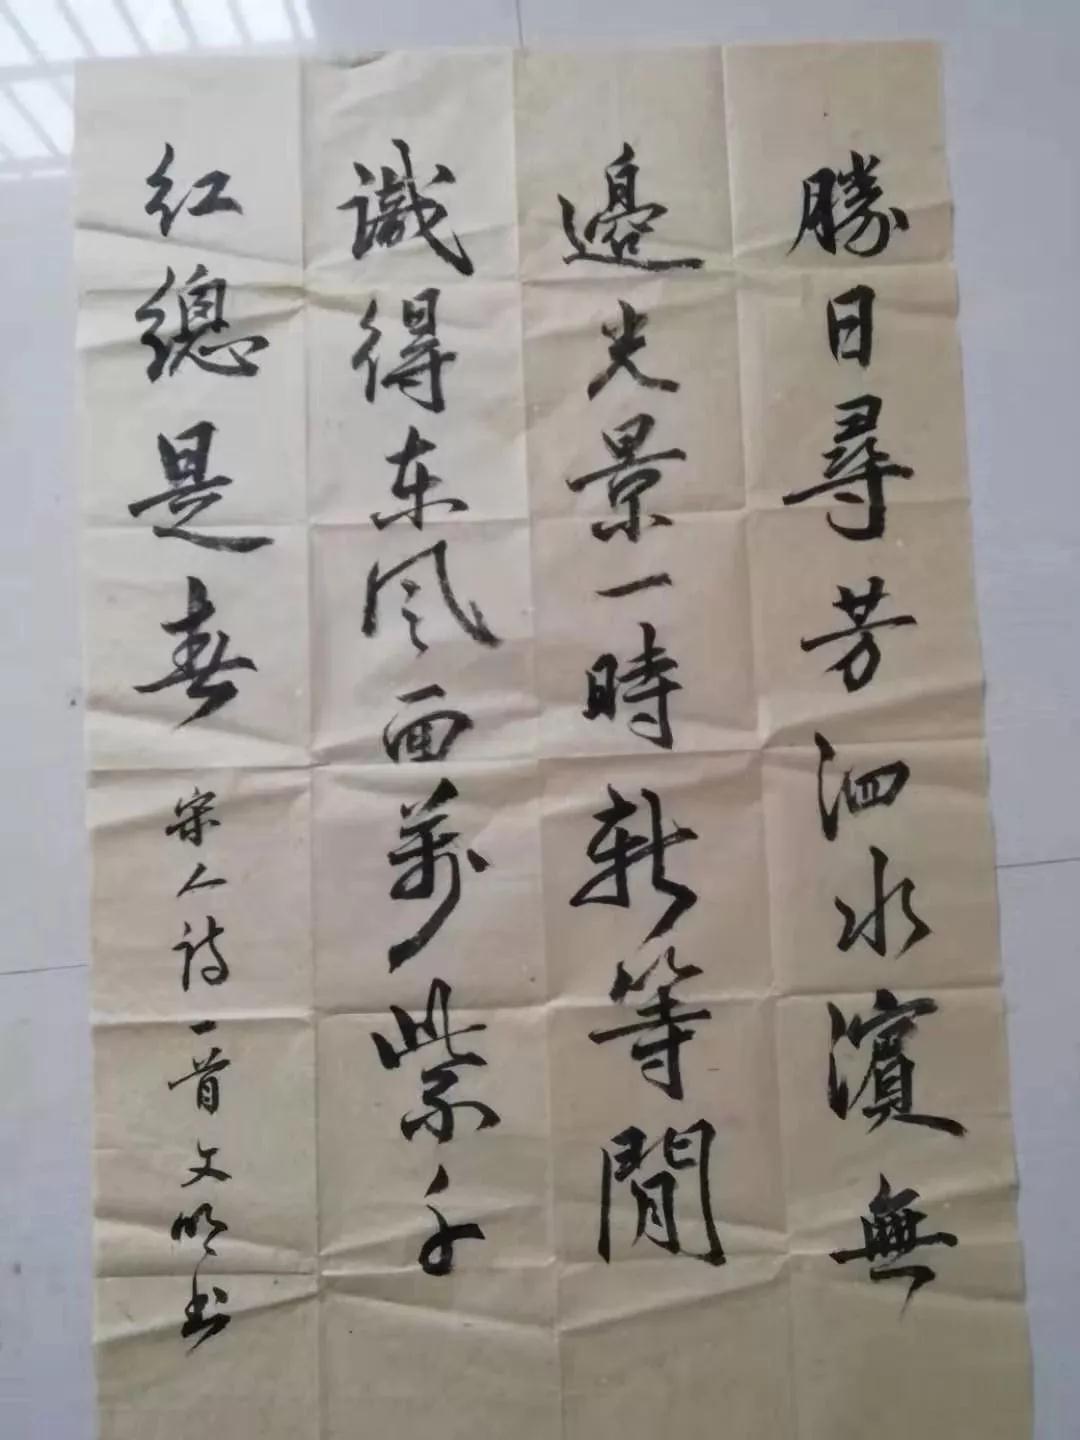 勝日尋芳泗水濱無
邊光景一時新等閒
識得东风面萬紫千
紅總是春
宋人诗一首文明书